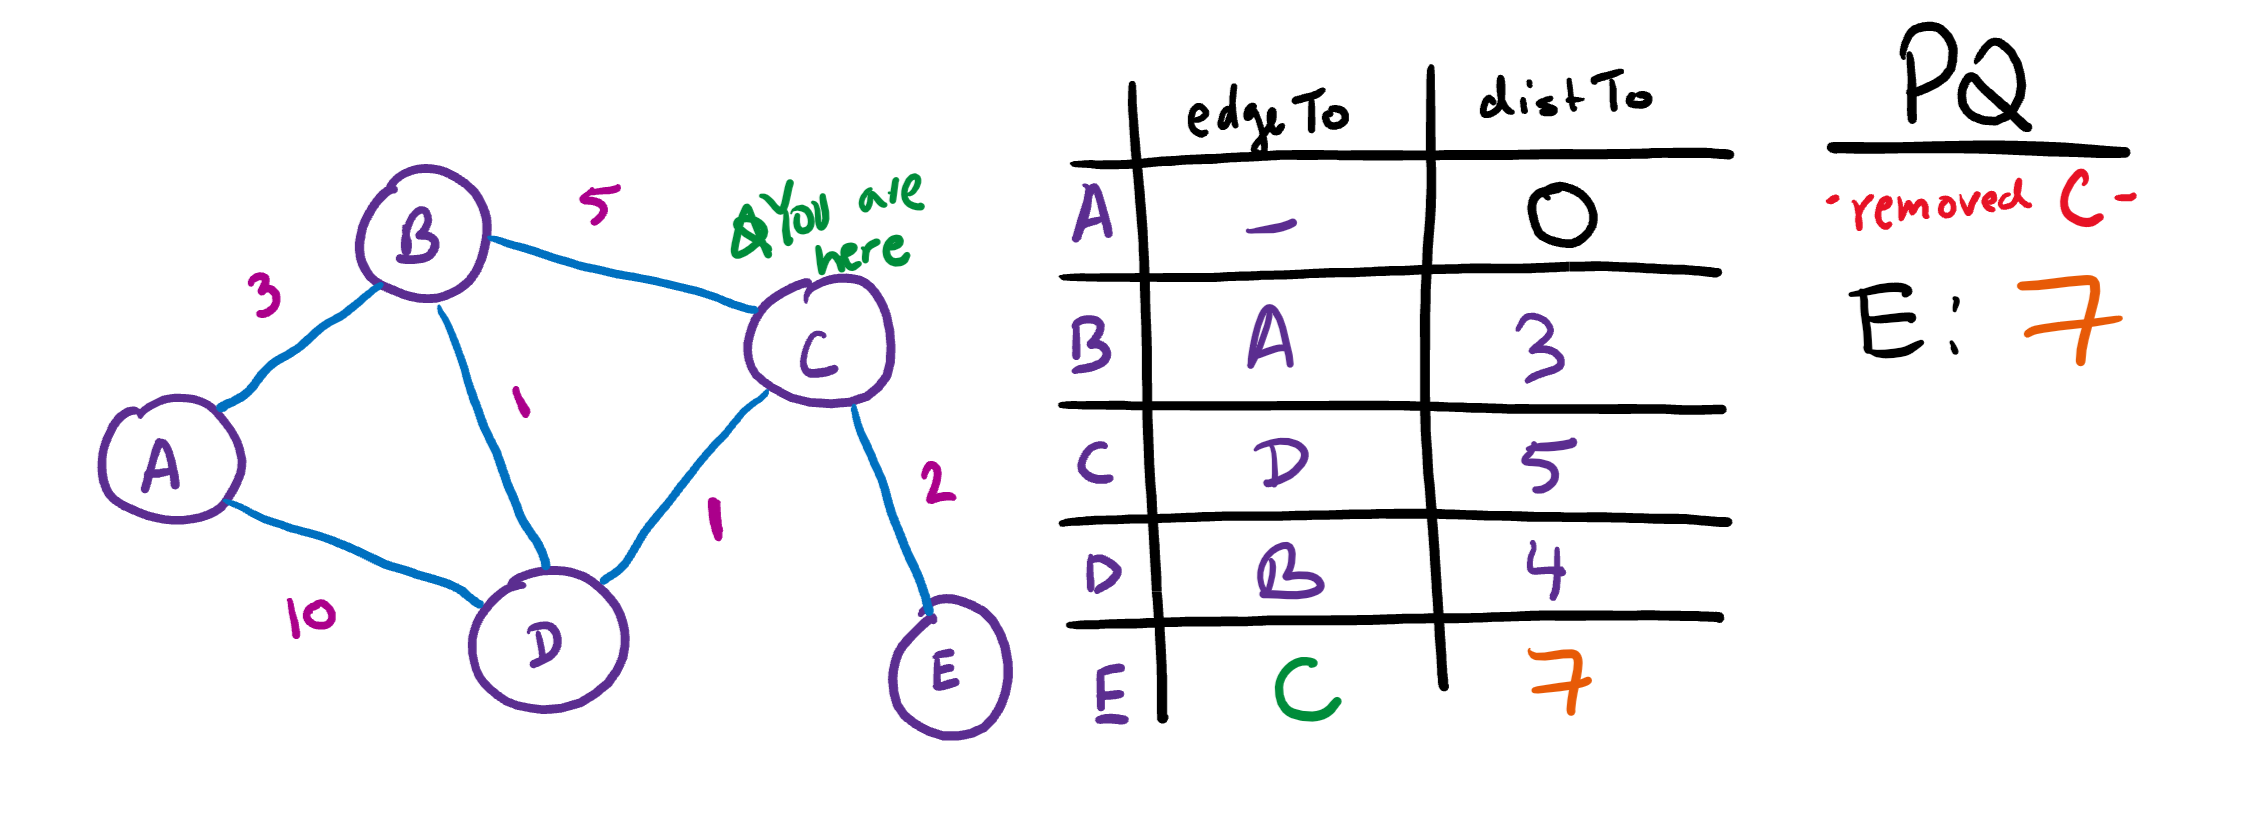 B
5
You are
here
3
C
1
A
2
1
10
D
E
edgeTo distTo
A - 0
B A 3
C D 5
D B 4
E C 7
PQ
-removed C-
E: 7